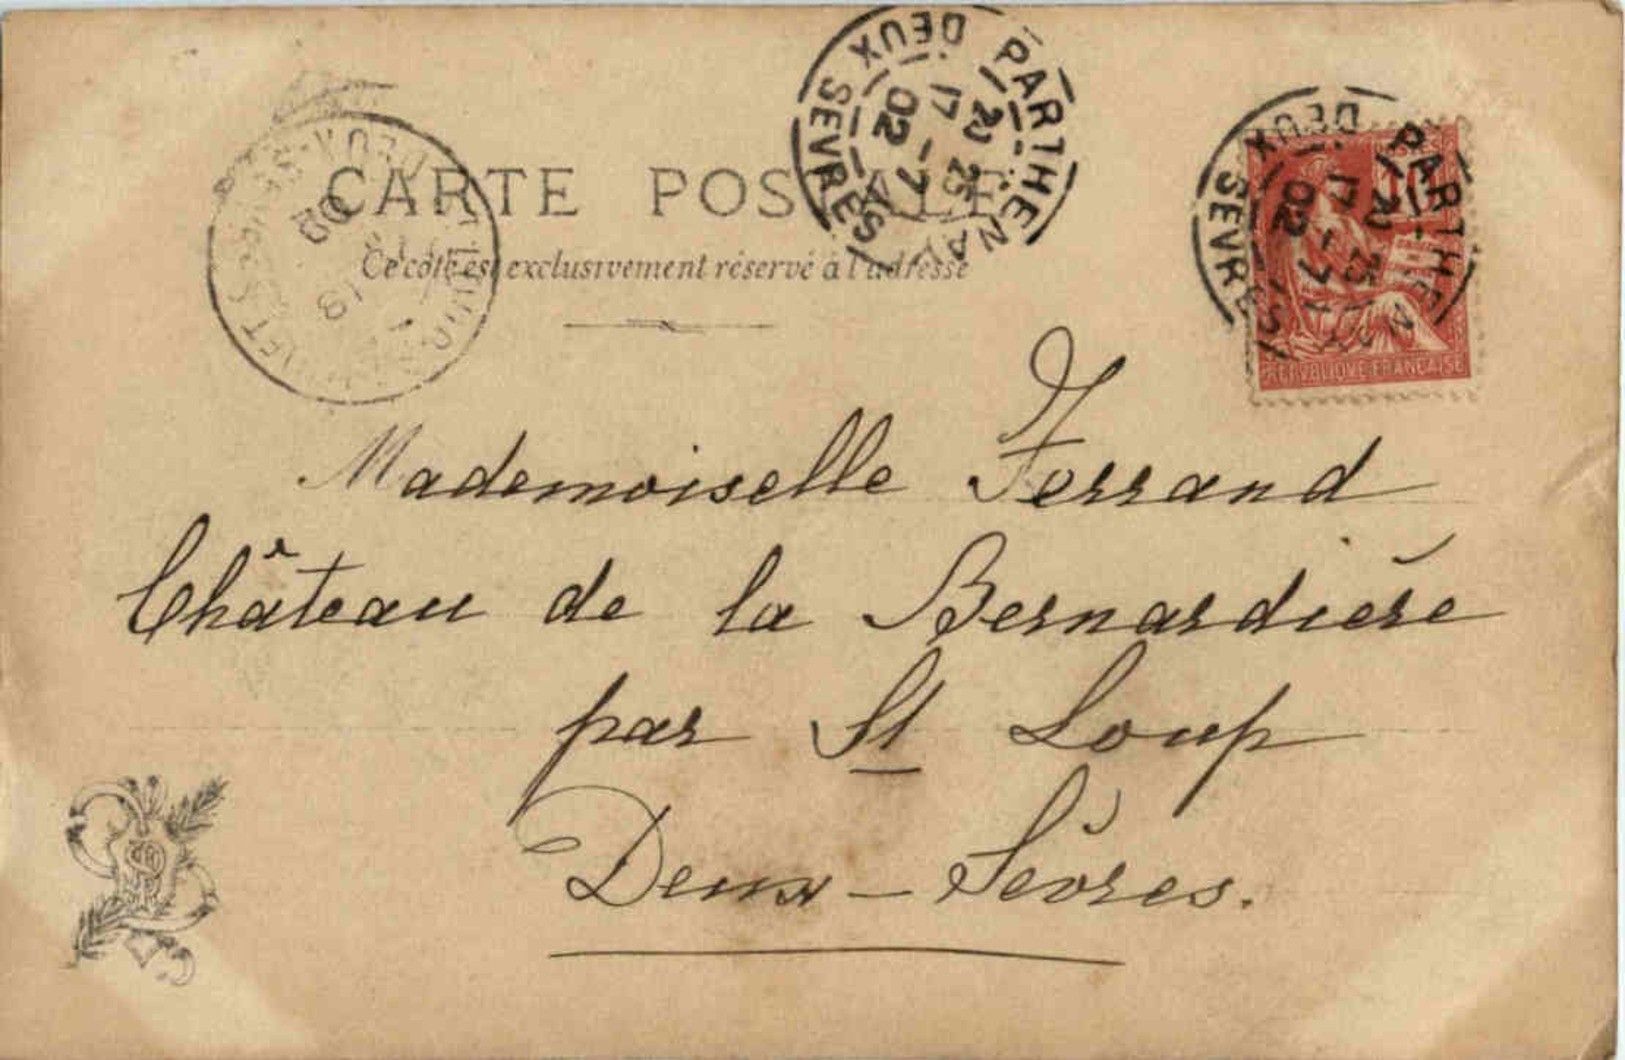 CARTE POSTALE
Ce côté est exclusivement réservé à l'adresse
PARTHENAY
DEUX SEVRES
17 -7
02
PARTHENAY
DEUX SEVRES
17 -7
02
10
REPUBLIQUE FRANÇAISE
DEUX-SEVRES
02
Mademoiselle Ferrand
Château de la Bernardière
par St Loup
Deux-Sèvres.